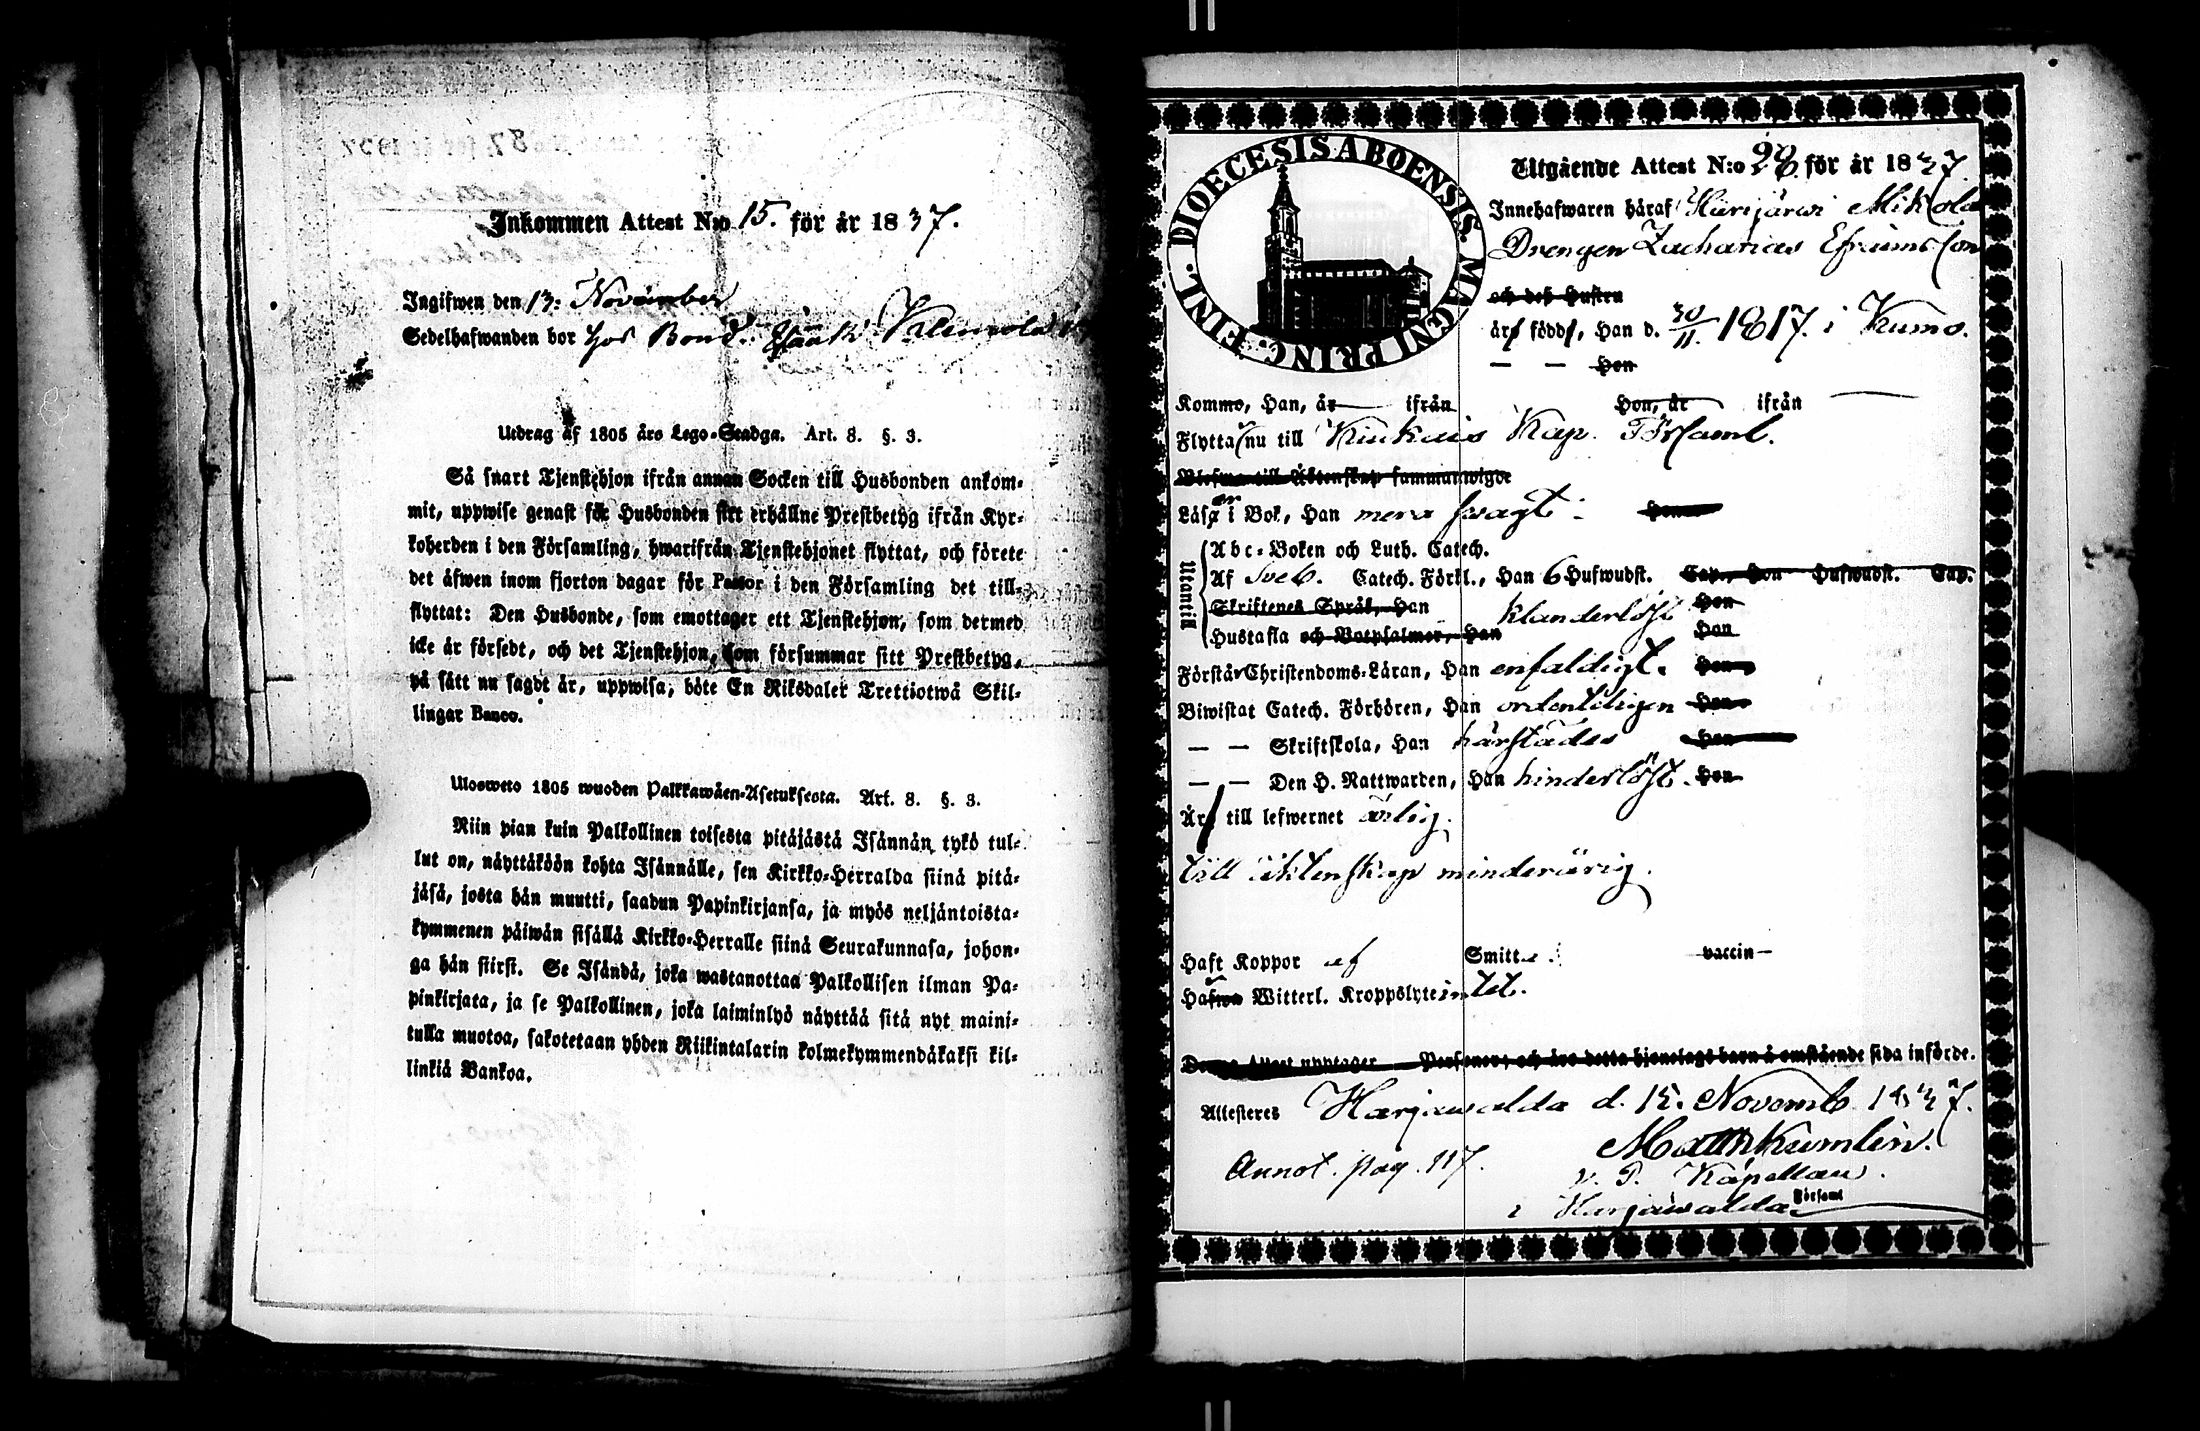 Inkommen Attest N:o 15. för år 1837.
Ingifwen den 13: November
Sedelhafwanden bor hos Bond.
Utdrag af 1805 års Lego-Stadga. Art. 8. §. 3.
Så snart Tjenstehjon ifrån annan Socken till Husbonden ankom-
mit, uppwise genast för Husbonden sitt erhållne Prestbetyg ifrån Kyr-
koherden i den Församling, hwarifrån Tjenstehjonet flyttat, och förete
det äfwen inom fjorton dagar för Pastor i den Församling det till-
flyttat: Den Husbonde, som emottager ett Tjenstehjon, som dermed
icke är försedt, och det Tjenstehjon, som försummar sitt Prestbetyg,
på sätt nu sagdt är, uppwisa, böte En Riksdaler Trettiotwå Skil-
lingar Banco.
Ulosweto 1805 wuoden Palkkawäen-Asetuksesta. Art. 8. §. 3.
Niin pian kuin Palkollinen toisesta pitäjästä Isännän tykö tul-
lut on, näyttäköön kohta Isännälle, sen Kirkko-Herralda siinä pitä-
jäsä, josta hän muutti, saadun Papinkirjansa, ja myös neljäntoista-
kymmenen päiwän sisällä Kirkko-Herralle siinä Seurakunnasa, johon-
ga hän siirsi. Se Isändä, joka wastanottaa Palkollisen ilman Pa-
pinkirjata, ja se Palkollinen, joka laiminlyö näyttää sitä nyt maini-
tulla muotoa, sakotetaan yhden Riikintalarin kolmekymmendäkaksi kil-
linkiä Bankoa.
DIOECESIS ABOENSIS. MAGNI PRINC. FINL.
Utgående Attest N:o 28 för år 1837.
Innehafwaren häraf Hiirijärwi Mikola
Drengen Zacharias Efraimsson
och deß Hustru
är född, Han d. 30/11 1817. i Kumo.
— — Hon
Kommo, Han, år — ifrån Hon, år ifrån —
Flyttar nu till Kiukais Kap. Församl.
Blefwo till Äktenskap sammanwigde
Läser i Bok, Han mera swagt. Hon
Utantill
Abc-Boken och Luth. Catech.
Af Sveb. Catech. Förkl., Han 6 Hufwudst. Cap., Hon Hufwudst. Cap.
Skriftenes Språk, Han klanderlöst Hon
Hustafla och Botpsalmer, Han Hon
Förstår Christendoms-Läran, Han enfaldigt. Hon
Biwistat Catech. Förhören, Han ordentligen Hon
— — Skriftskola, Han härstädes Hon
— — Den H. Nattwarden, Han hinderlöst. Hon
Är till lefwernet ärlig.
till äktenskap minderårig.
Haft Koppor af Smitta vaccin —
Hafwa Witterl. Kroppslyte intet.
Denna Attest upptager Personer, och äro detta hjonelags barn å omstående sida införde.
Attesteres Harjawalda d. 15. Novemb. 1837.
Matth Kumlin.
Annot. pag. 117.
v. P. Kapellan.
i Harjawalda Församl